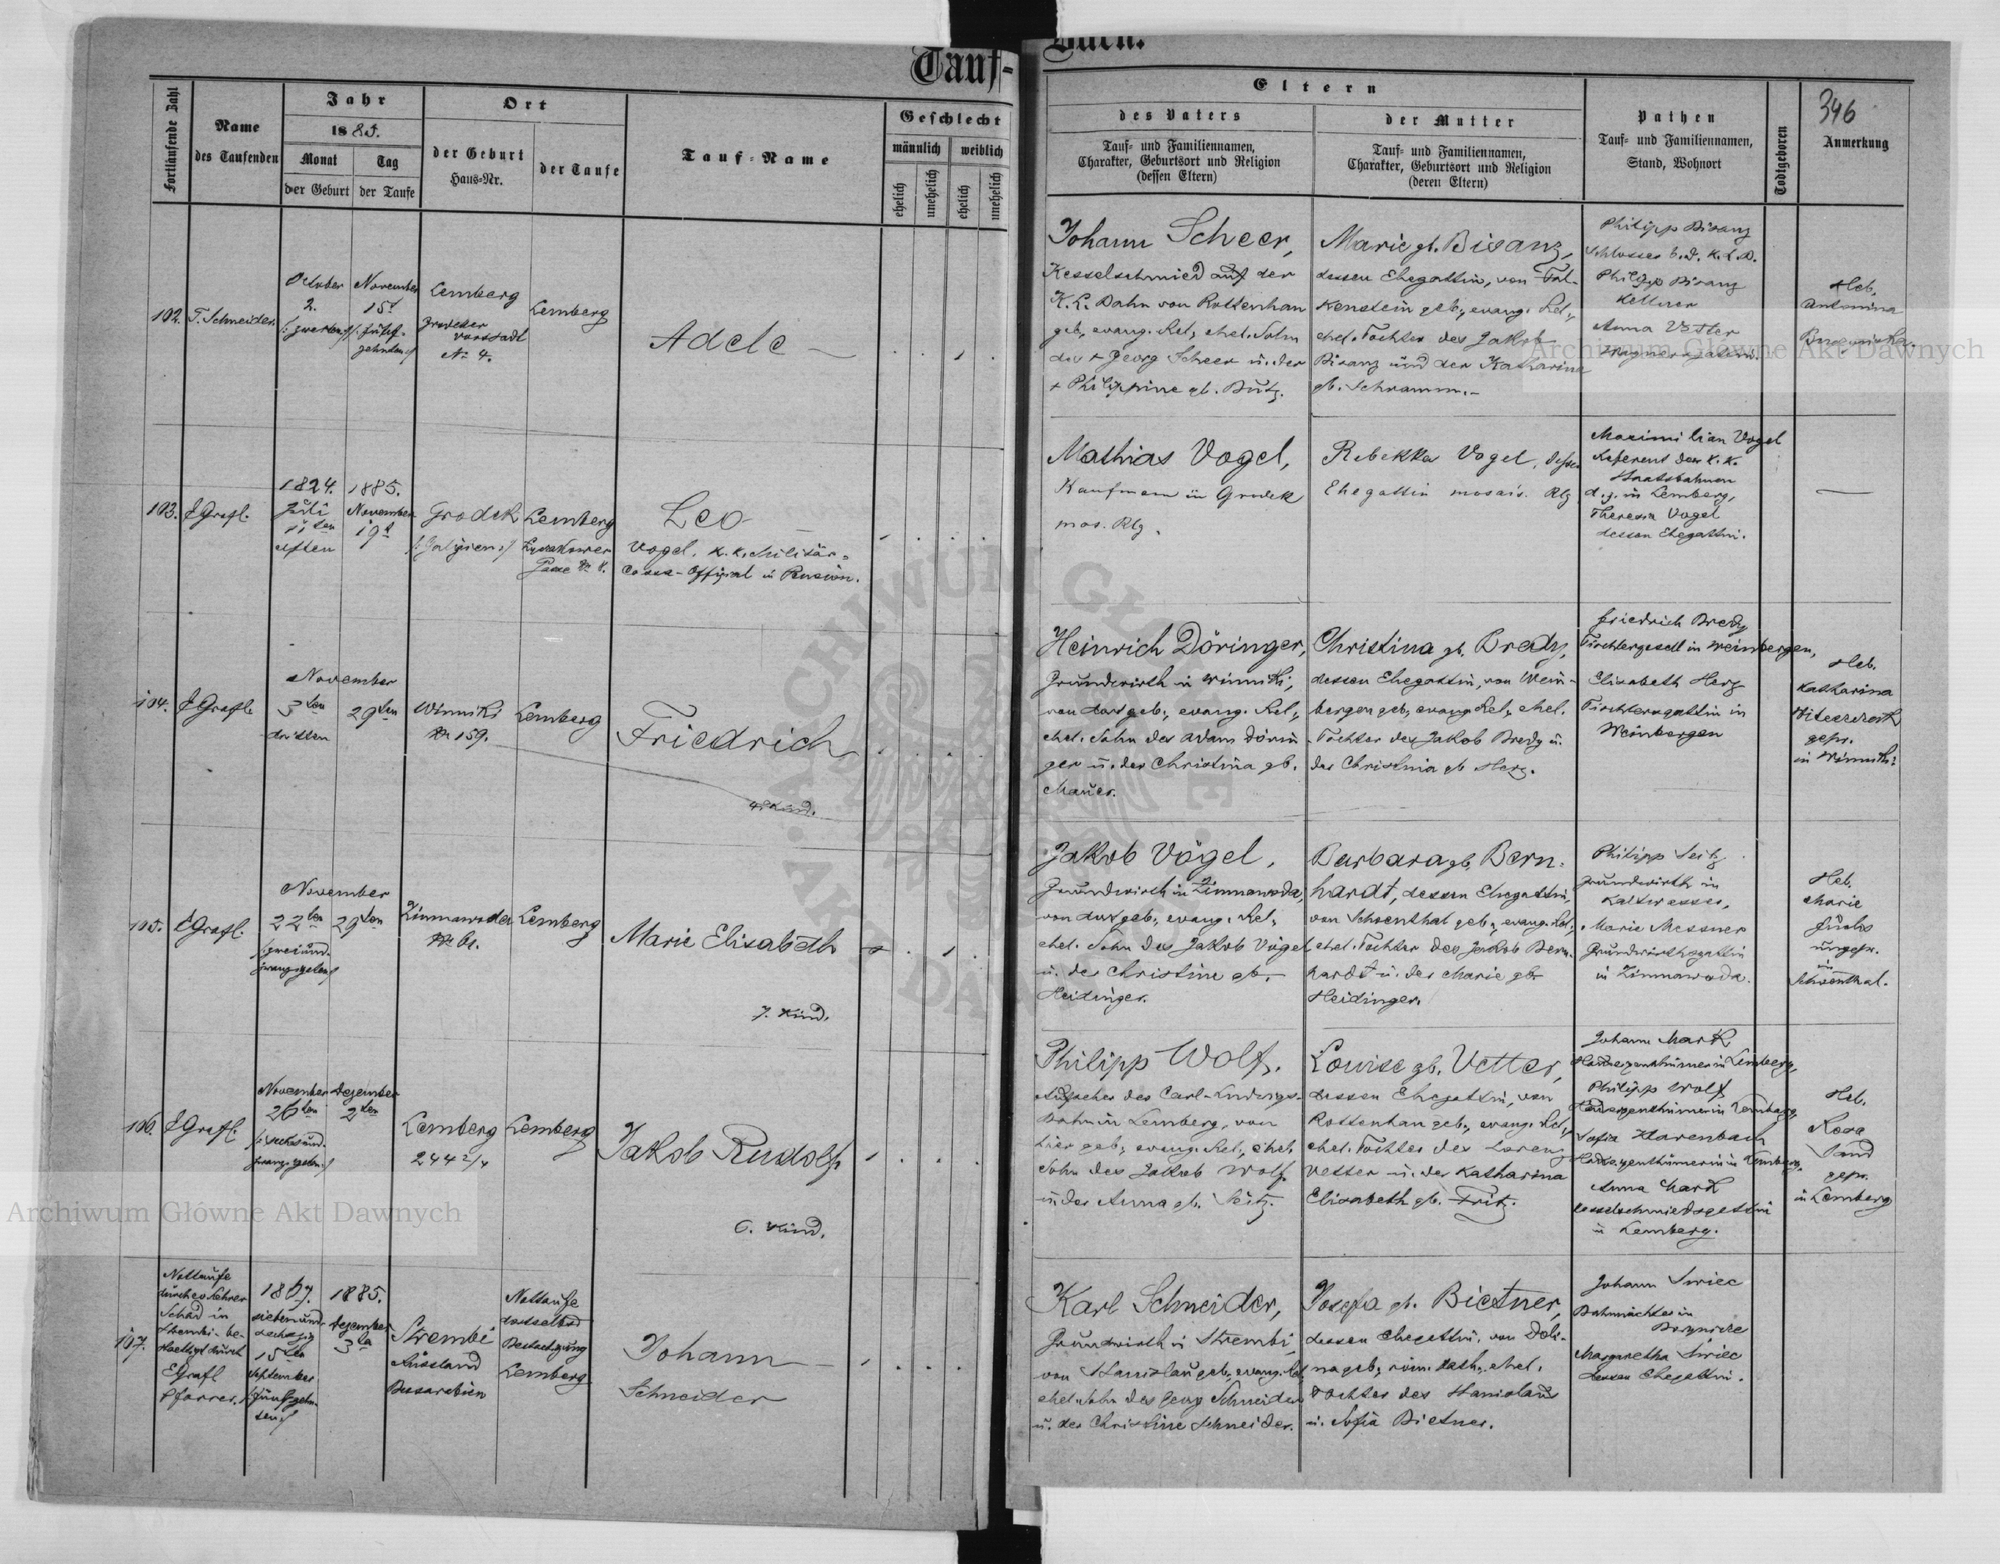 Tauf-Buch.
Fortlaufende Zahl
Name
des Taufenden
Jahr
1885.
Monat
der Geburt
Tag
der Taufe
Ort
der Geburt
Haus-Nr.
der Taufe
Tauf-Name
Geschlecht
männlich
weiblich
ehelich
unehelich
ehelich
unehelich
Eltern
des Vaters
Tauf- und Familiennamen,
Charakter, Geburtsort und Religion
(dessen Eltern)
der Mutter
Tauf- und Familiennamen,
Charakter, Geburtsort und Religion
(deren Eltern)
Pathen
Tauf- und Familiennamen,
Stand, Wohnort
Todtgeboren
346
Anmerkung
102.
T. Schneider.
October
2.
November
15t
Lemberg
vorstadt
№ 4.
Lemberg
Adele
Johann Scheer,
Kesselschmied auf der
K. L. Bahn von Rottenhan
geb., evang. Rel., ehel. Sohn
des + Georg Scheer u. der
+ Philippine gb. Butz.
Marie gb. Bisanz,
dessen Ehegattin, von Fal-
kenstein geb., evang. Rel.,
ehel. Tochter des Jakob
Bisanz und der Katharina
gb. Schramm.-
Philipp Bisanz
Schlosser b. d. K. L. B.
Philipp Bisanz
Kellner
Anna Vetter
Heb.
Antonina
103.
EGrafl.
1824.
Juli
11ten
elften
1885.
November
19t
Grodek
/:Galizien:/
Lemberg
Lyczakower
Gasse № 8.
Leo
Vogel, k. k. Militär-
Cassa-Offizial in Pension.
Mathias Vogel,
Kaufmann in Grodek
mos. Rlg.
Rebekka Vogel, dessen
Ehegattin mosais. Rlg
Maximilian Vogel
Referent der k. k.
Staatsbahnen
d. z. in Lemberg,
Theresia Vogel
dessen Ehegattin.
104.
EGrafl.
November
3ten
dritten
29ten
Winniki
№ 159.
Lemberg
Friedrich
4. Kind.
Heinrich Döringer,
Grundwirth in Winniki,
von dort geb., evang. Rel.,
ehel. Sohn des Adam Dörin
ger u. der Christina gb.
Mauer.
Christina gb. Bredy,
dessen Ehegattin, von Wein-
bergen geb., evang. Rel., ehel.
Tochter des Jakob Bredy u.
der Christina gb Herz.
Friedrich Bredy
Tischlergesell in Weinbergen,
Elisabeth Herz
Tischlersgattin in
Weinbergen
Heb.
Katharina
gepr.
in Winniki
105.
EGrafl.
November
22ten
/:zweiund-
zwanzigsten:/
29ten
Zimnawoda
№ 61.
Lemberg
Marie Elisabeth
7. Kind.
Jakob Vogel,
Grundwirth in Zimnawoda,
von dort geb., evang. Rel.,
ehel. Sohn des Jakob Vogel
u. der Christine gb.
Heidinger.
Barbara gb. Bern-
hardt, dessen Ehegattin,
von Schoenthal geb., evang. Rel.,
ehel. Tochter des Jakob Bern-
hardt u. der Marie gb.
Heidinger.
Philipp Seitz
Grundwirth in
Kaltwasser,
Marie Messner
Grundwirthsgattin
in Zimnawoda.
Heb.
Marie
ungepr.
in
Schoenthal.
106.
EGrafl.
November
26ten
/:sechsund-
zwanzigsten:/
Dezember
2ten
Lemberg
244 2/4
Lemberg
Jakob Rudolf
6. Kind.
Philipp Wolf,
Aufseher der Carl-Ludwigs-
Bahn in Lemberg, von
hier geb., evang. Rel., ehel.
Sohn des Jakob Wolf
u. der Anna gb. Seitz.
Louise gb. Vetter,
dessen Ehegattin, von
Rottenhan geb., evang. Rel.,
ehel. Tochter des Lorenz
Vetter u. der Katharina
Elisabeth gb. Fritz.
Johann Mark
Hauseigenthümer in Lemberg,
Philipp Wolf
Hauseigenthümer in Lemberg,
Sofia Harenbach
Hauseigenthümerin in Lemberg,
Anna Mark
Kesselschmiedsgattin
in Lemberg.
Heb.
Rosa
gepr.
in Lemberg
107.
Nottaufe
durch Lehrer
Schad in
Strembi be-
staetigt durch
EGrafl
Pfarrer.
1867.
siebenund-
sechszig
15ten
September
/:fünfzehn-
ten:/
1885.
Dezember
3ten
Strembi
Russland
Bessarabien
Nottaufe
daselbst
Bestaetigung
Lemberg
Johann
Schneider
Karl Schneider,
Grundwirth in Strembi,
von Stanislau geb., evang. Rel.
ehel. Sohn des Georg Schneider
u. der Christine Schneider.
Josefa gb. Bietner,
dessen Ehegattin, von Doli-
na geb., röm. kath., ehel.
Tochter des Stanislaus
u. Sofia Bietner.
Johann Swiec
Bahnwächter in
Margaretha Swiec
dessen Ehegattin.
Archiwum Główne Akt Dawnych
Archiwum Główne Akt Dawnych